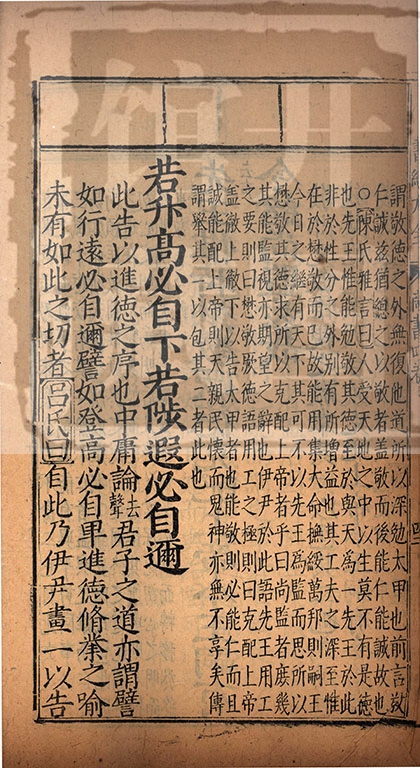 謂敬德之外無復他道所以深勉太甲也前言敬
仁誠茲獨總之以敬者蓋敬而後能仁能誠故也
○陳氏雅言曰人受天地之中以生莫不有是德
也先王惟能勉敬其德至於與天為一先王於此
非於性分之外別有所增益也其工夫之深至惟
在於懋敬而已故能用集大命撫綏萬邦則嗣王
今日之繼有天下其可不以先王為監而思所以
懋敬其德求所以克配上帝者乎曰尚監者庶幾
其能監視亦期望之辭也伊尹於此語先王用工
之要則曰懋敬厥德語用工之極則曰克配上帝
蓋徹上徹下以告太甲者也惟能敬則必能仁而且
誠能配上帝則天親民懷而鬼神亦無不享矣傳
謂舉其一以包其二者此也
若升高必自下若陟遐必自邇
此告以進德之序也中庸論去聲君子之道亦謂譬
如行遠必自邇譬如登高必自卑進德脩業之喻
未有如此之切者呂氏曰自此乃伊尹畫一以告